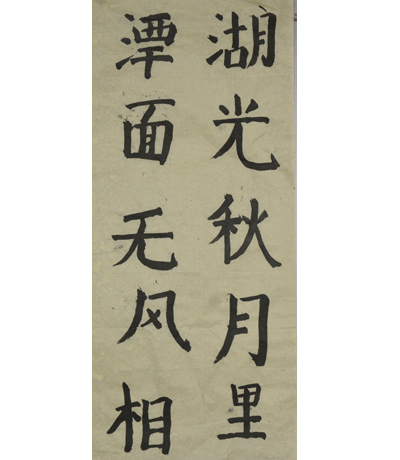 湖光秋月里
潭面无风相